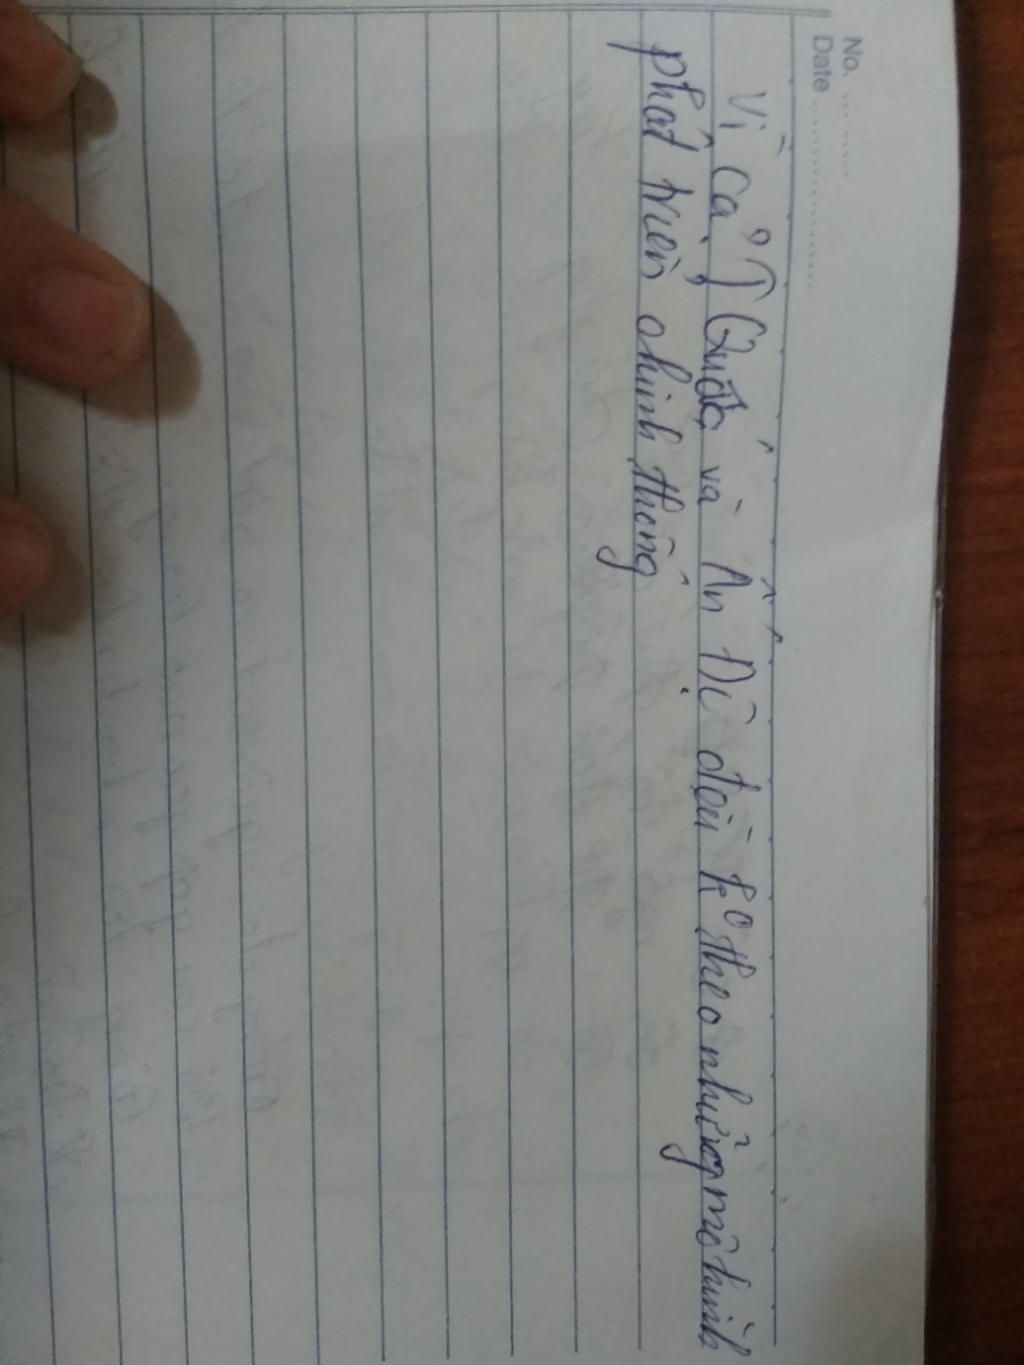 No. ...........
Date ......................
Vì cả TQuốc và Ấn Độ đều k⁰ theo những mô hình
phát triển chính thống